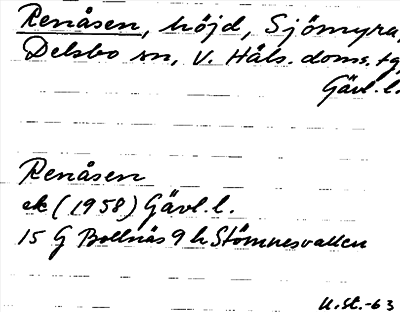 Renåsen, höjd, Sjömyra,
Delsbo sn, V. Häls. doms. tg,
Gävl. l.
Renåsen
ek (1958) Gävl. l.
15 G Bollnäs 9 h Stömnesvallen
U.St.-63